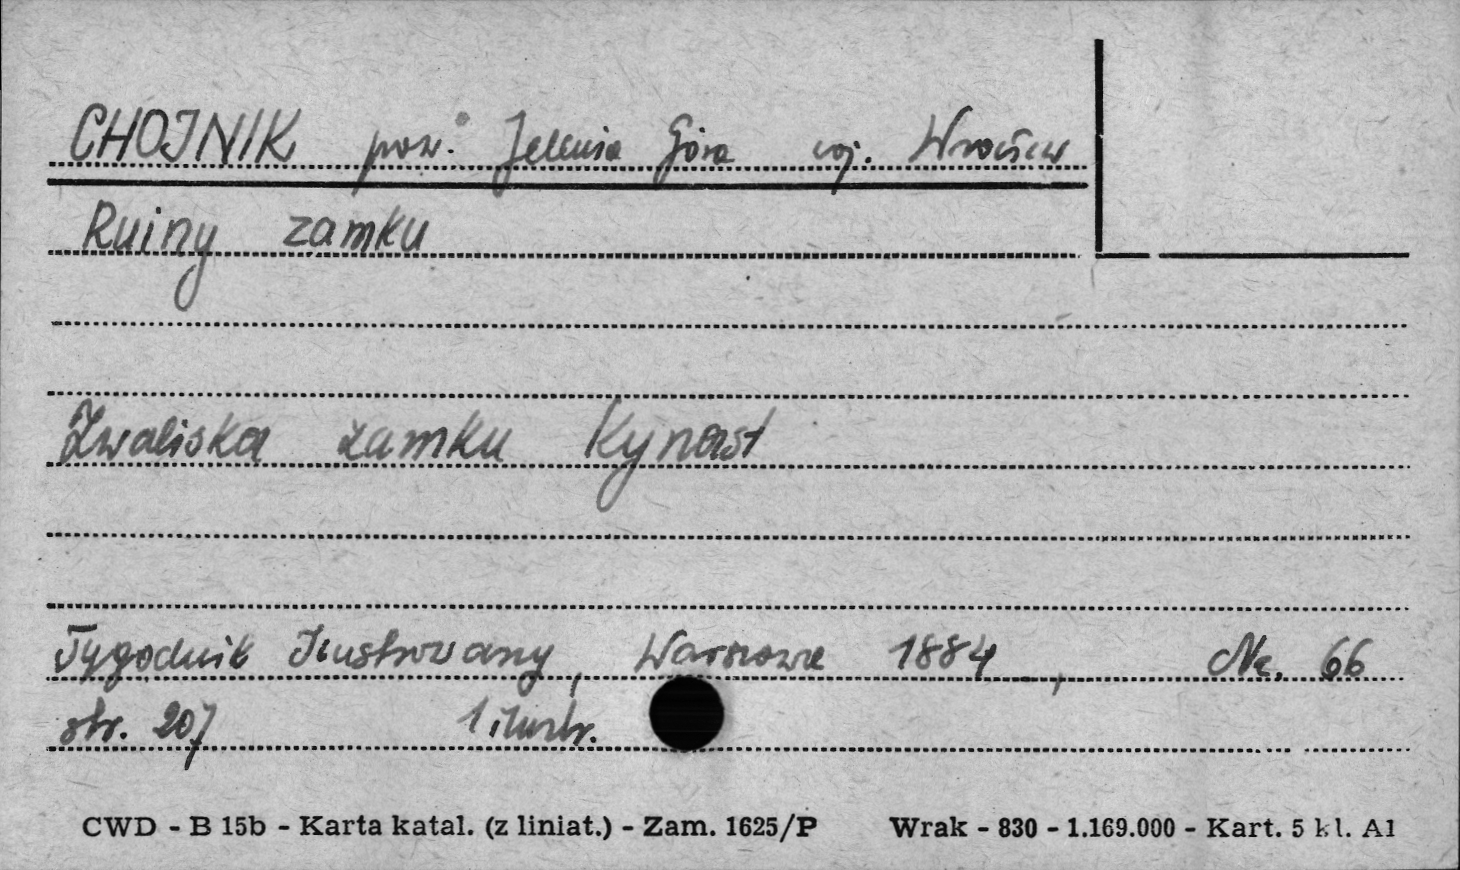 CHOJNIK pow. Jelenia Góra woj. Wrocław
Ruiny zamku
Zwaliska zamku Kynast
Tygodnik Ilustrowany, Warszawa 1884, Nr. 66
str. 207 1 ilustr.
CWD - B 15b - Karta katal. (z liniat.) - Zam. 1625/P Wrak - 830 - 1.169.000 - Kart. 5 kl. A1